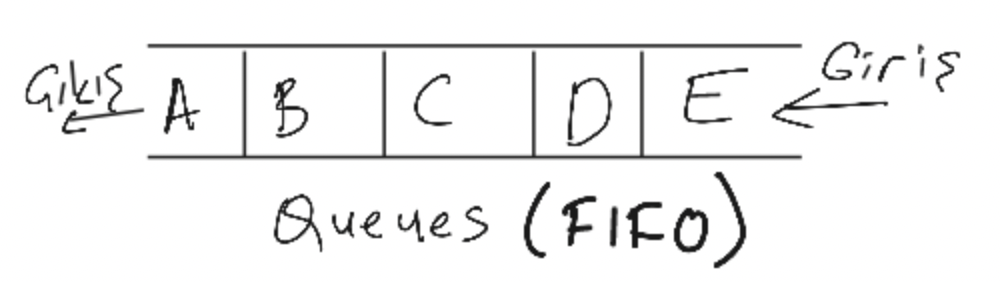 Çıkış A B C D E Giriş
Queues (FIFO)